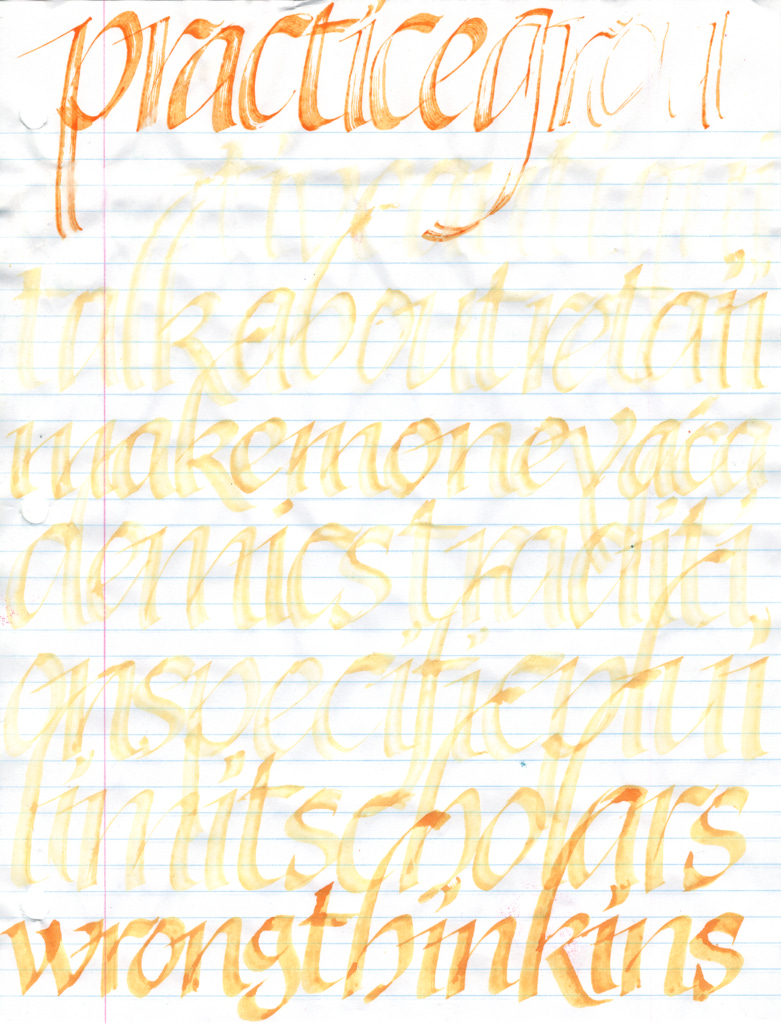 practicegrou
talkaboutretaii
makemoneyaca
demicstraditi
onspecificphi
limitscholars
wrongthinkins